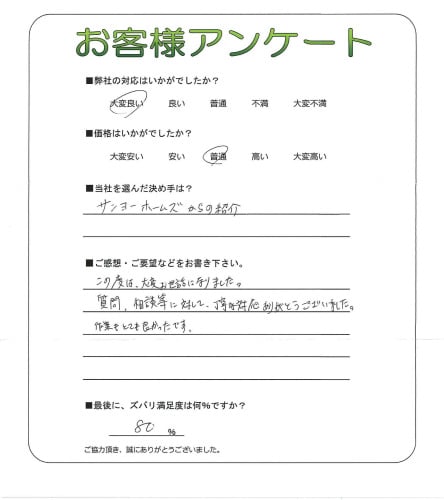 お客様アンケート
■弊社の対応はいかがでしたか?
大変良い 良い 普通 不満 大変不満
■価格はいかがでしたか?
大変安い 安い 普通 高い 大変高い
■当社を選んだ決め手は?
サンヨーホームズからの紹介
■ご感想・ご要望などをお書き下さい。
この度は、大変お世話になりました。
質問、相談等に対して、丁寧な対応ありがとうございました。
作業もとても良かったです。
■最後に、ズバリ満足度は何%ですか?
80 %
ご協力頂き、誠にありがとうございました。